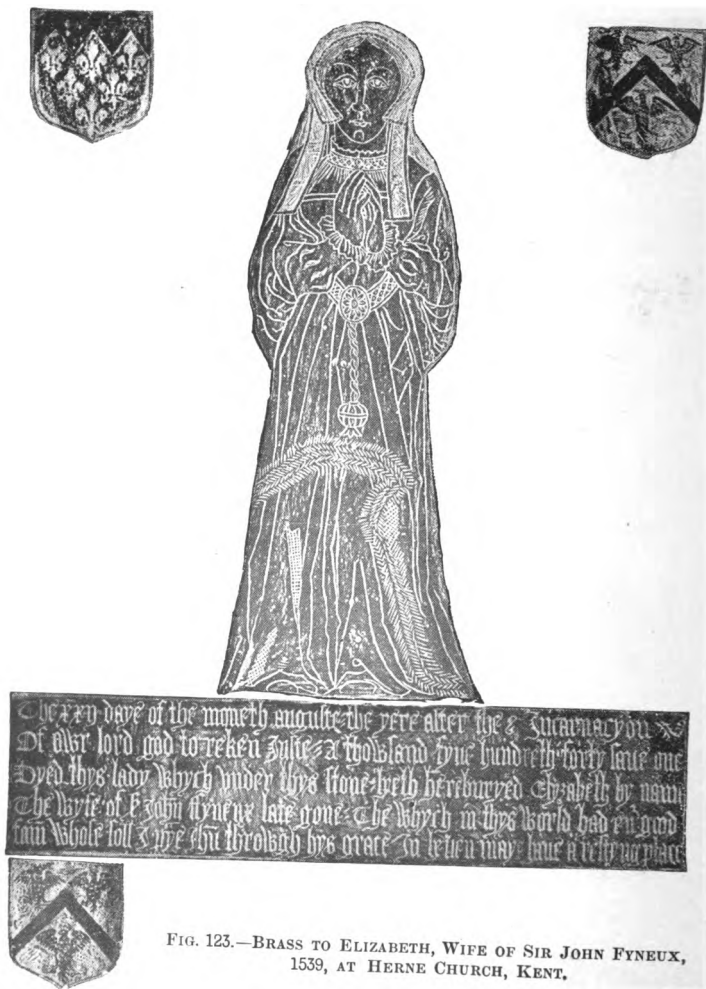 The xxij daye of the moneth auguste the yere after the Incarnacyon
Of owr lord god to reken Julie a thowsand fyue hundreth forty saue one
Dyed thys lady whych vnder thys stone lyeth here buryed Elyzabeth by nam
The wyfe of John fyneux late gone The whych in thys world had good
fam whose soll I Jhu throwgh hys grace In heuen may haue a restyng place
FIG. 123.—BRASS TO ELIZABETH, WIFE OF SIR JOHN FYNEUX,
1539, AT HERNE CHURCH, KENT.